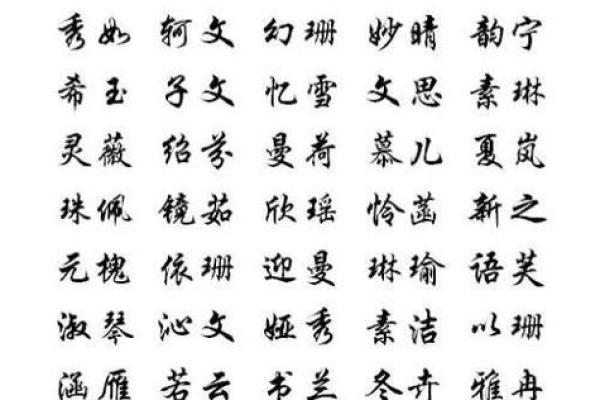 秀如 轲文 幻珊 妙晴 韵宁
希玉 子文 忆雪 文思 素琳
灵薇 绍芬 曼荷 慕儿 夏岚
珠佩 镜茹 欣瑶 怜菡 新之
元槐 依珊 迎曼 琳瑜 语芙
淑琴 沁文 娅秀 素洁 以珊
涵雁 若云 书兰 冬卉 雅冉